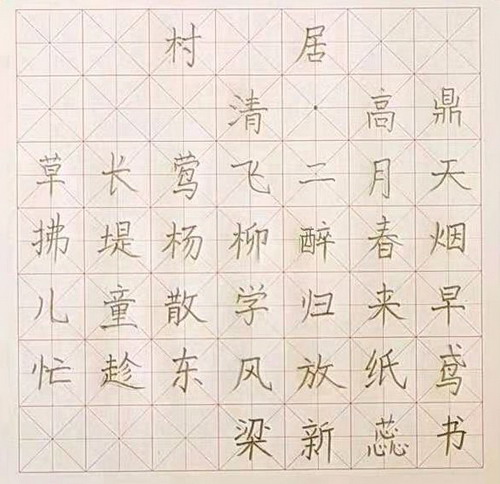 村居
清·高鼎
草长莺飞二月天
拂堤杨柳醉春烟
儿童散学归来早
忙趁东风放纸鸢
梁新蕊书